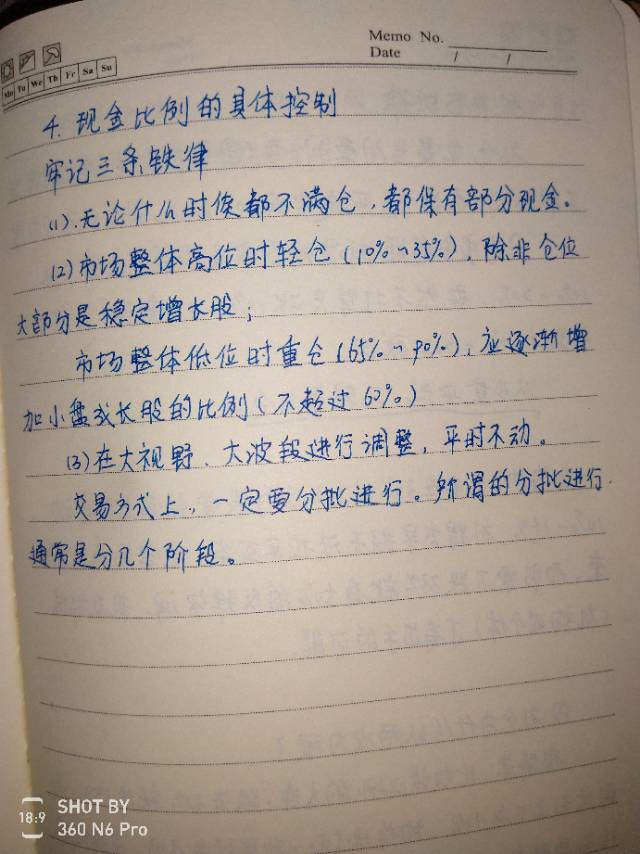 Memo No.
Date / /
Mo Tu We Th Fr Sa Su
4. 现金比例的具体控制
牢记三条铁律
(1).无论什么时候都不满仓，都保有部分现金。
(2)市场整体高位时轻仓(10%~35%)，除非仓位
大部分是稳定增长股；
市场整体低位时重仓(65%~90%)，应逐渐增
加小盘成长股的比例(不超过60%)
(3)在大视野、大波段进行调整，平时不动。
交易方式上，一定要分批进行。所谓的分批进行.
通常是分几个阶段。
18:9 SHOT BY
360 N6 Pro